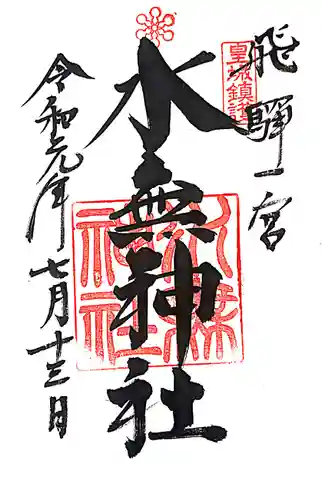 飛騨一宮
皇城鎮護
水無神社
令和元年七月十三日
水無神社